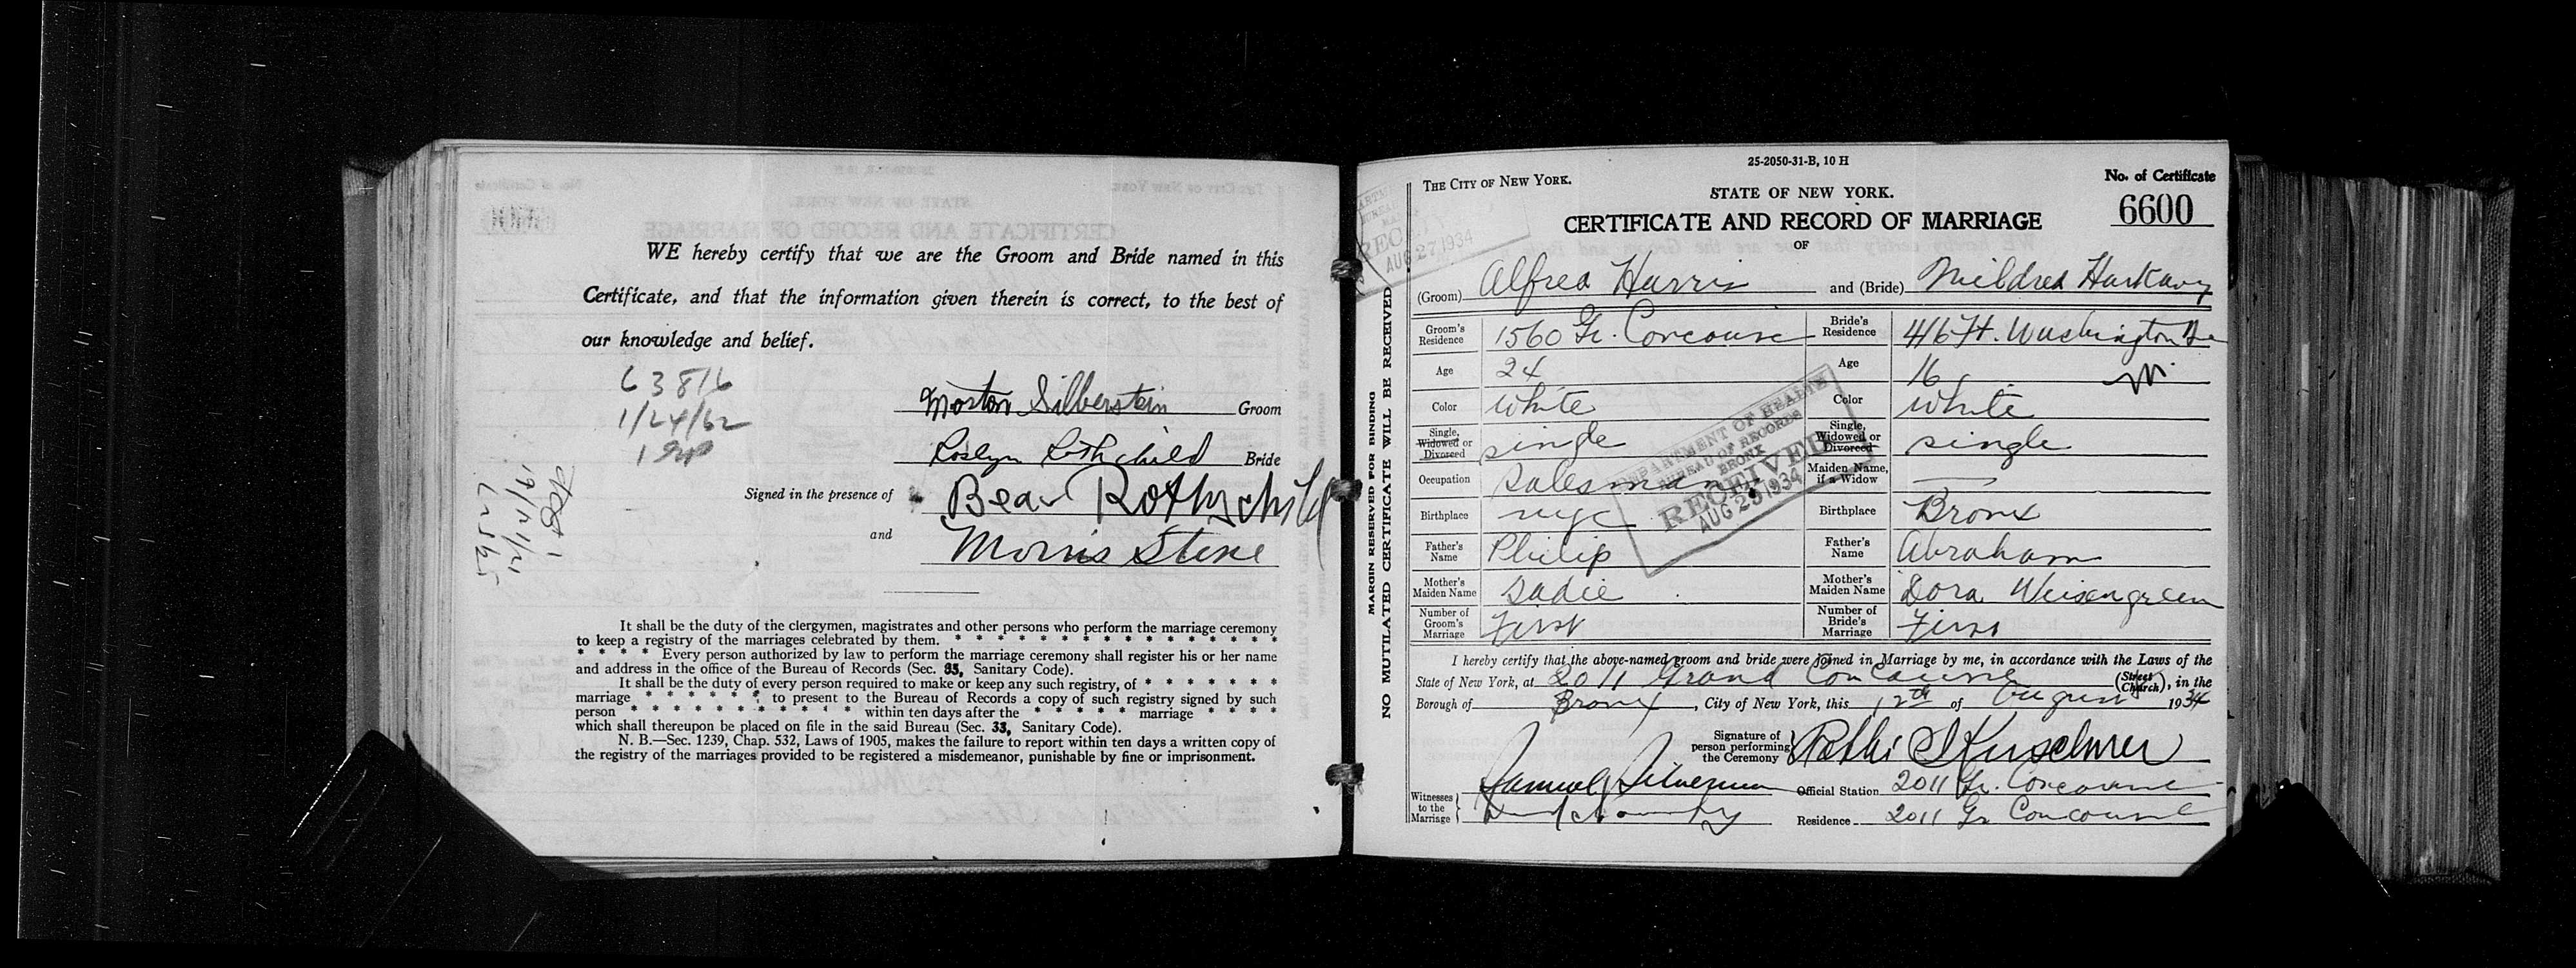 WE hereby certify that we are the Groom and Bride named in this
Certificate, and that the information given therein is correct, to the best of
our knowledge and belief.
63816
1/24/62
Morton Silberstein Groom
Roslyn Rothchild Bride
Signed in the presence of Bear Rothschild
and Morris Stine
It shall be the duty of the clergymen, magistrates and other persons who perform the marriage ceremony
to keep a registry of the marriages celebrated by them. * * * * * * * * * * * * *
* * * * Every person authorized by law to perform the marriage ceremony shall register his or her name
and address in the office of the Bureau of Records (Sec. 35, Sanitary Code).
It shall be the duty of every person required to make or keep any such registry, of * * * * * * *
marriage * * * * * * * to present to the Bureau of Records a copy of such registry signed by such
person * * * * * * * * * * within ten days after the * * * * * marriage * * * *
which shall thereupon be placed on file in the said Bureau (Sec. 33, Sanitary Code).
N. B.—Sec. 1239, Chap. 532, Laws of 1905, makes the failure to report within ten days a written copy of
the registry of the marriages provided to be registered a misdemeanor, punishable by fine or imprisonment.
MARGIN RESERVED FOR BINDING
NO MUTILATED CERTIFICATE WILL BE RECEIVED
25-2050-31-B, 10 H
THE CITY OF NEW YORK.
STATE OF NEW YORK.
No. of Certificate
6600
CERTIFICATE AND RECORD OF MARRIAGE
OF
AUG 27 1934
(Groom) Alfred Harris and (Bride) Mildred Harkavy
Groom's Residence 1560 Gr. Concourse Bride's Residence 416 Ft. Washington Ave
Age 24 Age 16
Color White Color White
Single, Widowed or Divorced single Single, Widowed or Divorced single
Occupation Salesman Maiden Name, if a Widow —
Birthplace nyc Birthplace Bronx
Father's Name Philip Father's Name Abraham
Mother's Maiden Name Sadie Mother's Maiden Name Dora Weisengreen
Number of Groom's Marriage First Number of Bride's Marriage First
DEPARTMENT OF HEALTH
BUREAU OF RECORDS
BRONX
RECEIVED
AUG 23 1934
I hereby certify that the above-named groom and bride were joined in Marriage by me, in accordance with the Laws of the
State of New York, at 2011 Grand Concourse (Street Church), in the
Borough of Bronx, City of New York, this 12th of August 1934
Signature of person performing the Ceremony Rabbi S Kirschner
Witnesses to the Marriage Samuel Silverman Official Station 2011 Gr. Concourse
Residence 2011 Gr Concourse